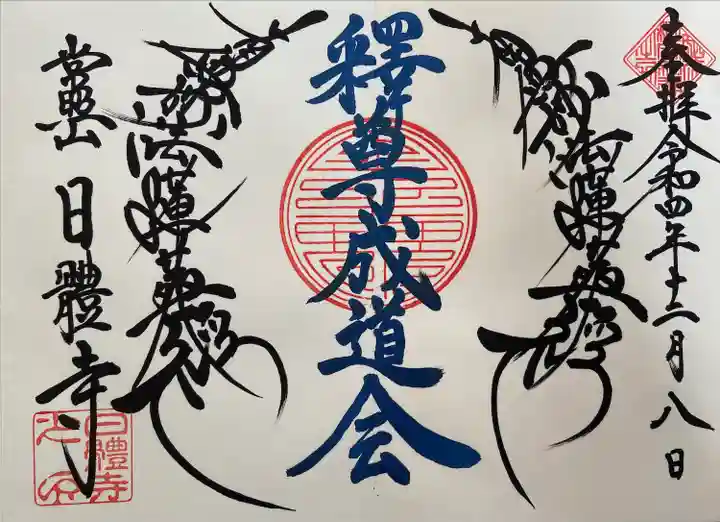 奉拝 令和四年十二月八日
妙法蓮華經
釋尊成道会
妙法蓮華經
日體寺
日體寺